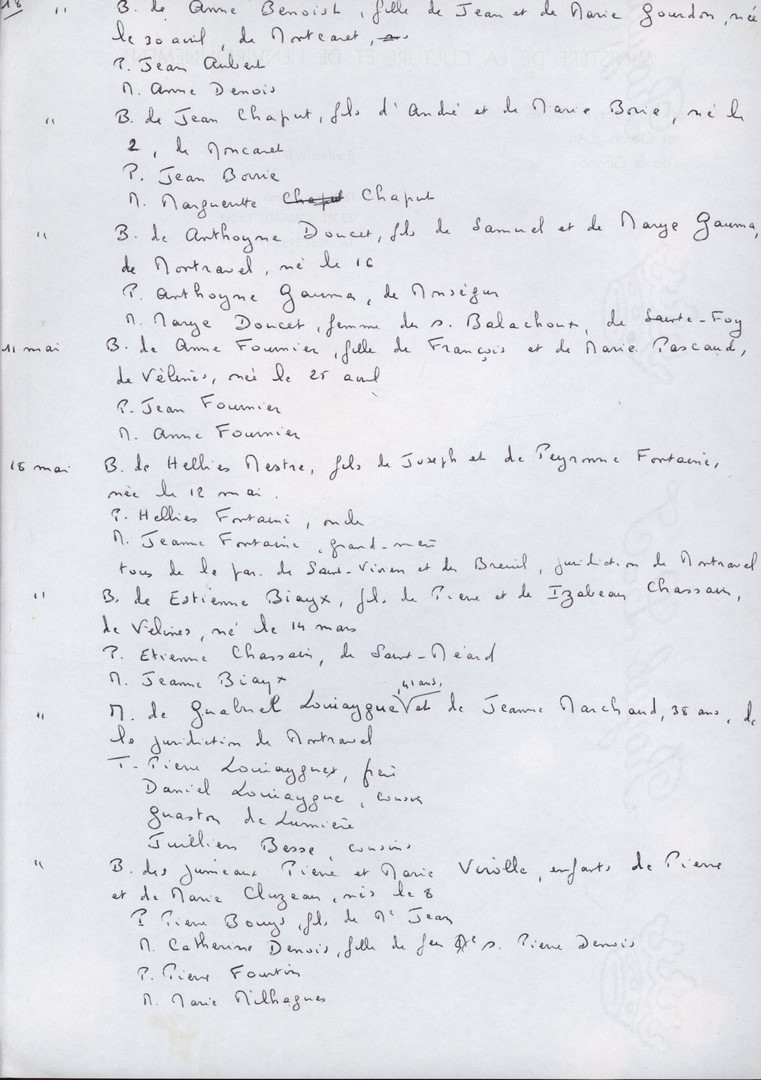 18 " B. de Anne Benoist, fille de Jean et de Marie Gourdon, née
le 30 avril, de Montcaret,
P. Jean Aubert
M. Anne Denois
" B. de Jean Chaput, fils d'André et de Marie Borie, né le
2, de Moncaret
P. Jean Borrie
M. Marguerite Chaput Chaput
" B. de Anthoyne Doucet, fils de Samuel et de Marye Gauma,
de Montravel, né le 16
P. Anthoyne Gauma, de Monségur
M. Marye Doucet, femme du s. Balachoux, de Sainte-Foy
11 mai B. de Anne Fournier, fille de François et de Marie Pascaud,
de Vélines, née le 25 avril
P. Jean Fournier
M. Anne Fournier
18 mai B. de Hellies Mestre, fils de Joseph et de Peyronne Fontaine,
née le 12 mai.
P. Hellies Fontaine, oncle
M. Jeanne Fontaine, grand-mère
tous de la par. de Saint-Vivien et du Breuil, juridiction de Montravel
" B. de Estienne Biayx, fils de Pierre et de Izabeau Chassain,
de Vélines, né le 14 mars
P. Etienne Chassain, de Saint-Méard
M. Jeanne Biayx
" M. de Guabriel Louiaygue, 41 ans, et de Jeanne Marchand, 38 ans, de
la juridiction de Montravel
T. Pierre Louiaygues, frère
Daniel Louiaygue, cousin
Guaston de Lumière
Juilliem Besse, cousins
" B. des jumeaux Pierre et Marie Virolle, enfants de Pierre
et de Marie Cluzeau, nés le 8
P. Pierre Bouys, fils de Me Jean
M. Catherine Denois, fille de feu s. Pierre Denois
P. Pierre Fourtin
M. Marie Milhagues